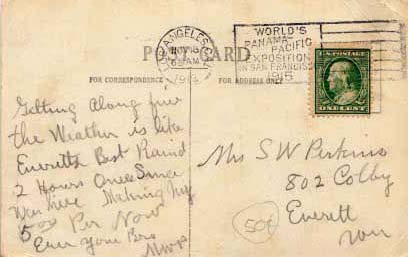 LOS ANGELES, CAL.
NOV 18
6 30 AM
191
WORLD'S
PANAMA-PACIFIC
EXPOSITION
IN SAN FRANCISCO
1915
POST CARD
FOR CORRESPONDENCE
FOR ADDRESS ONLY
U.S. POSTAGE
ONE CENT
Getting Along fine
the Weather is like
Everetts Best Raind
2 Hours Once Since
Wer here Making My
5 00 Per Now
Ever your Bro
Mrs S W Perkins
802 Colby
Everett
Wn
50¢